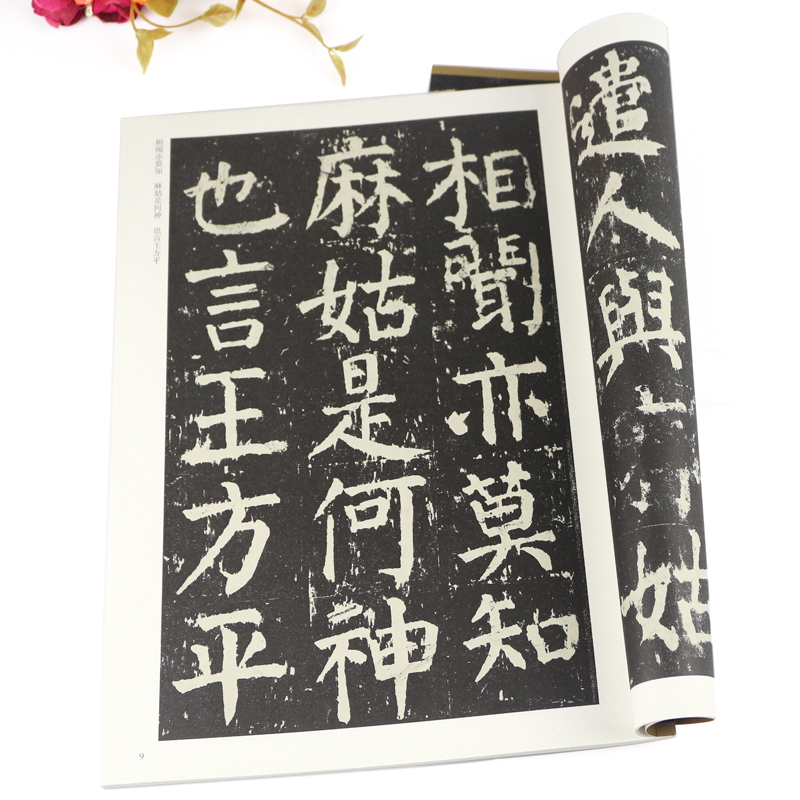 遣人與麻姑
相聞亦莫知
麻姑是何神
也言王方平
相闻亦莫知 麻姑是何神 也言王方平
9